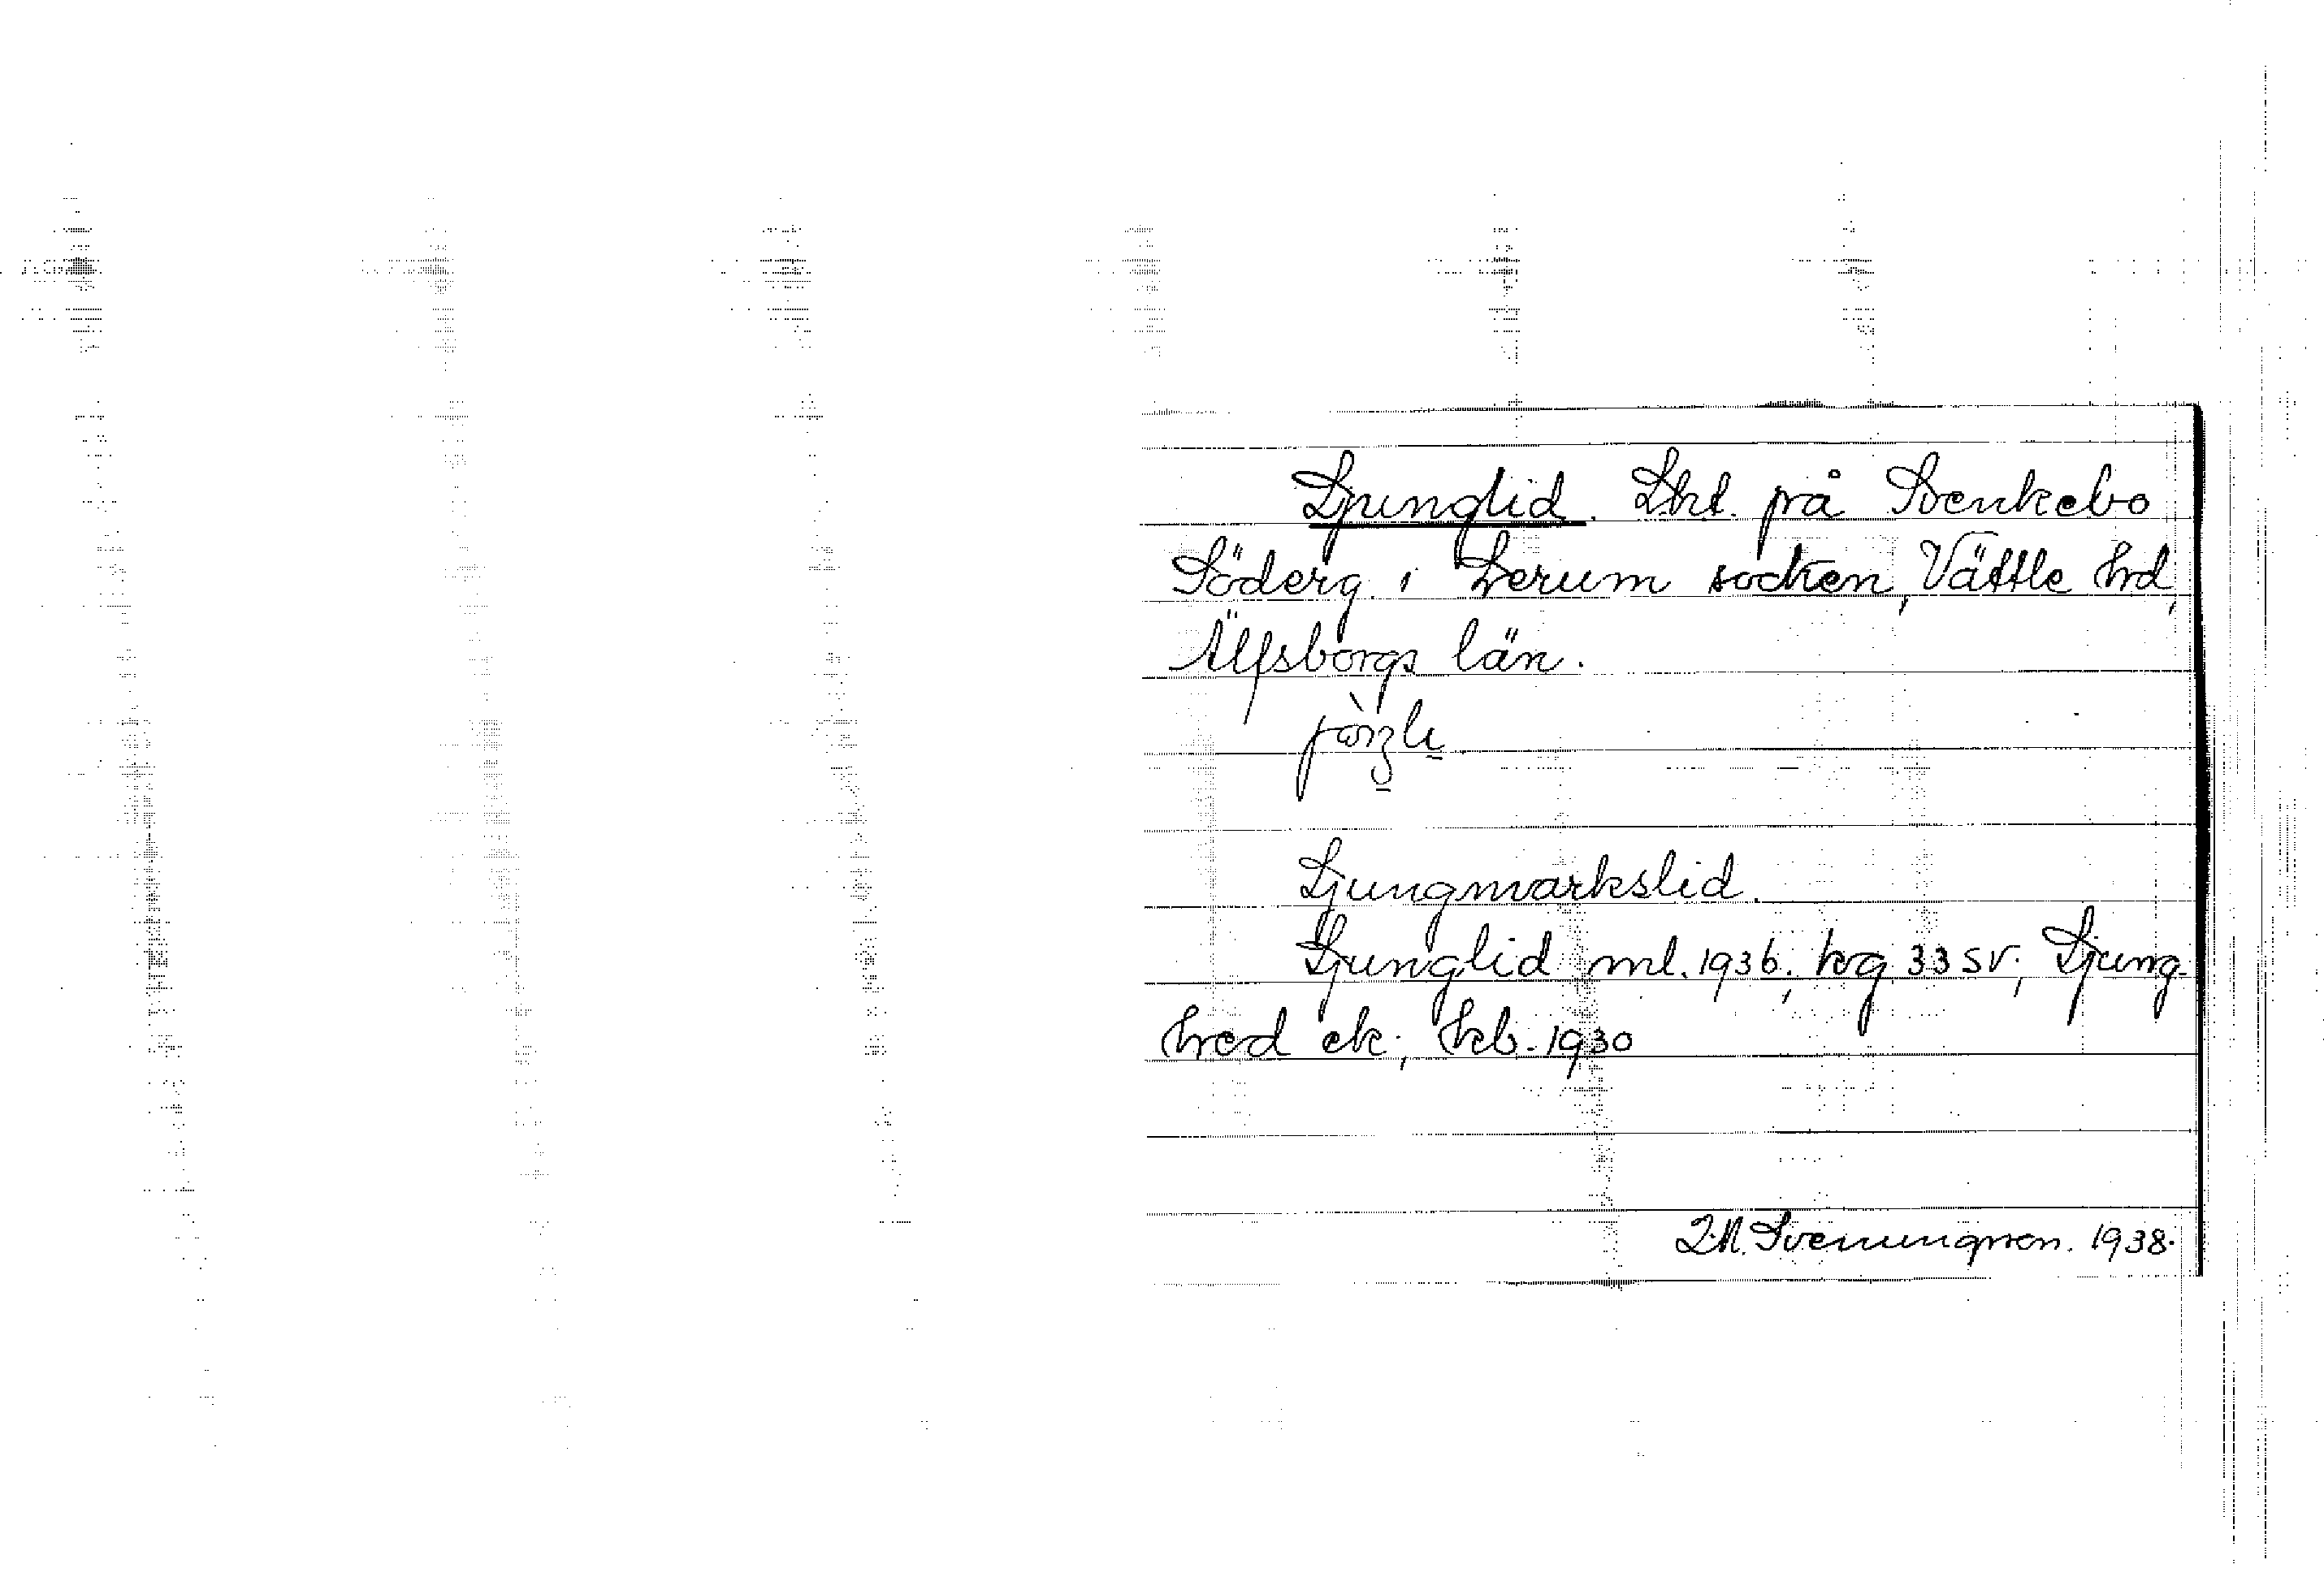 Ljunglid. Lht. på Svenkebo
Söderg. i Lerum socken, Vättle hrd,
Älfsborgs län.
Ljungmarkslid.
Ljunglid ml. 1936; hg 33 SV; Ljung
hed ek; kb. 1930
Svenungsson. 1938.